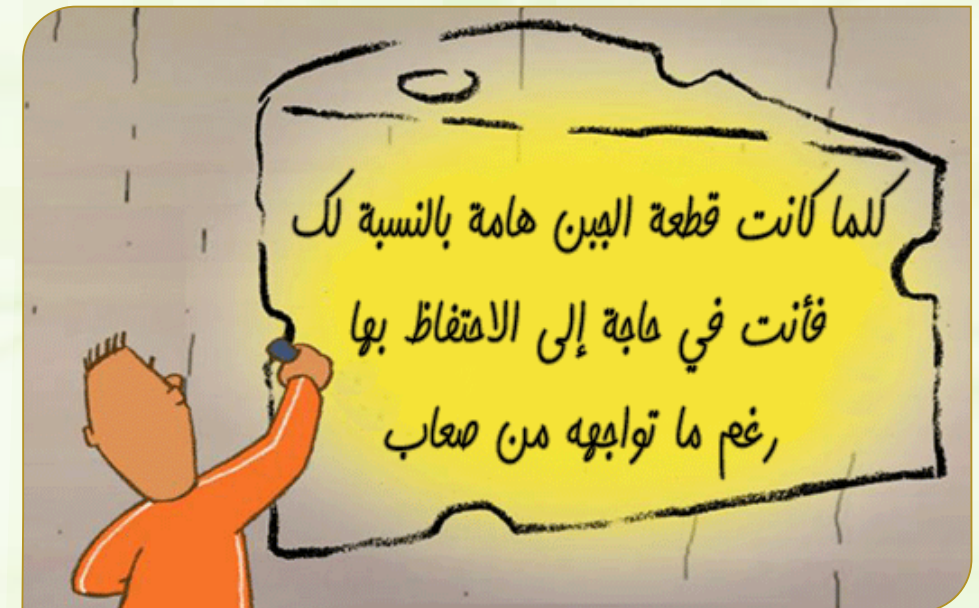 كلما كانت قطعة الجبن هامة بالنسبة لك
فأنت في حاجة إلى الاحتفاظ بها
رغم ما تواجهه من صعاب